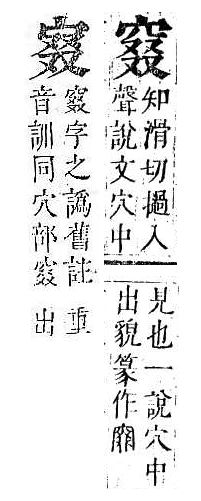 窡
知滑切撾入
聲說文穴中
見也一說穴中
出貌篆作
窡字之譌舊註
音訓同穴部窡
重
出